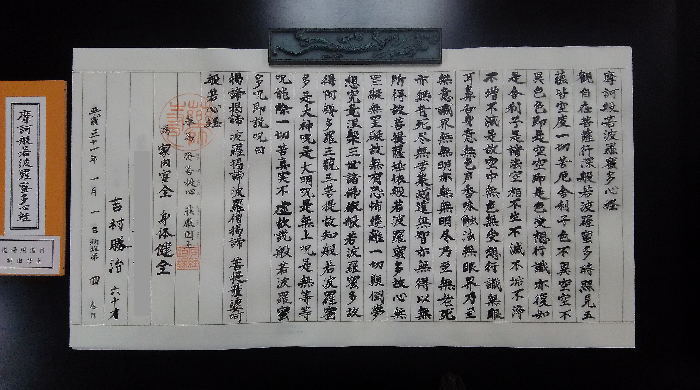 摩訶般若波羅蜜多心経
観自在菩薩行深般若波羅蜜多時照見五
蘊皆空度一切苦厄舎利子色不異空空不
異色色即是空空即是色受想行識亦復如
是舎利子是諸法空相不生不滅不垢不浄
不増不減是故空中無色無受想行識無眼
耳鼻舌身意無色声香味触法無眼界乃至
無意識界無無明亦無無明尽乃至無老死
亦無老死尽無苦集滅道無智亦無得以無
所得故菩提薩埵依般若波羅蜜多故心無
罣礙無罣礙故無有恐怖遠離一切顛倒夢
想究竟涅槃三世諸佛依般若波羅蜜多故
得阿耨多羅三藐三菩提故知般若波羅蜜
多是大神呪是大明呪是無上呪是無等等
呪能除一切苦真実不虚故説般若波羅蜜
多呪即説呪曰
掲諦掲諦波羅掲諦波羅僧掲諦菩提薩婆訶
般若心経
為 家内安全 身体健全
平成三十一年一月一日
吉村勝治 六十才
摩訶般若波羅蜜多心経